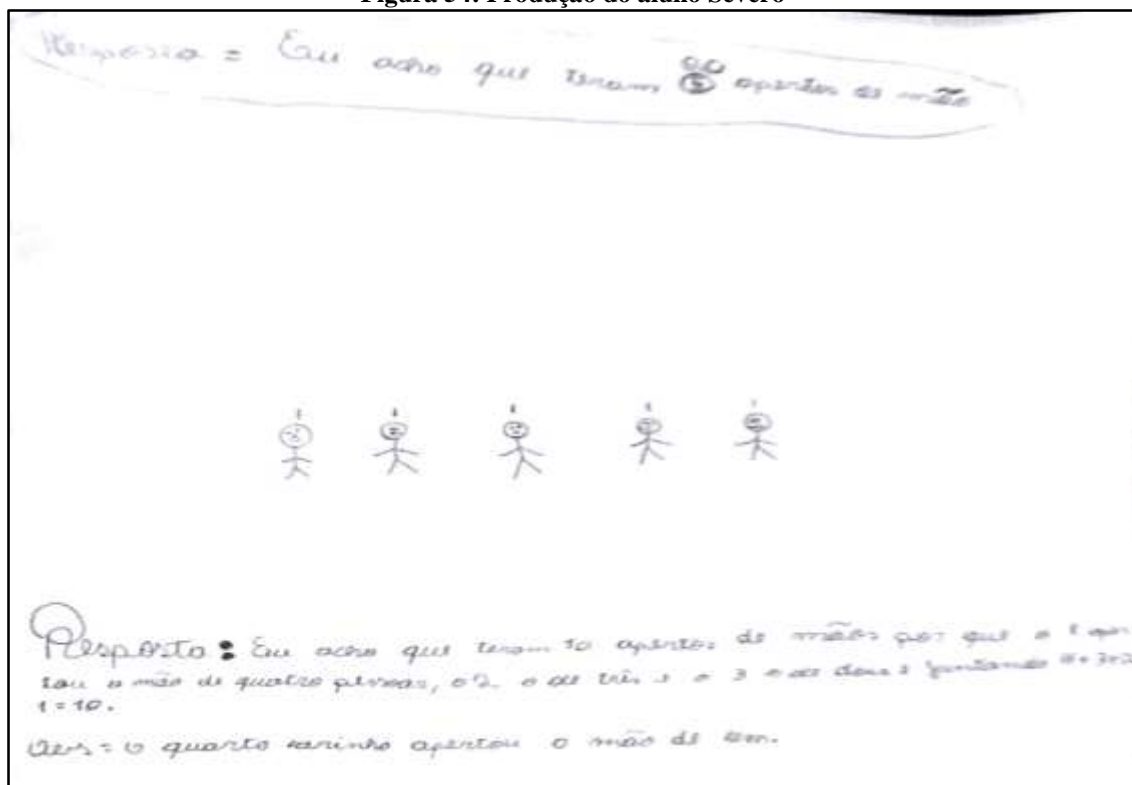 Figura 34: Produção do aluno Severo
Resposta = Eu acho que teram 5 apertos de mão
1 1 1 1 1
Resposta: Eu acho que teram 10 apertos de mãos por que o 1 aper
tou a mão de quatro pessoas, o 2 o de três e o 3 o de dois juntando 4+3+2
1=10.
Obs = o quarto carinho apertou o mão de um.